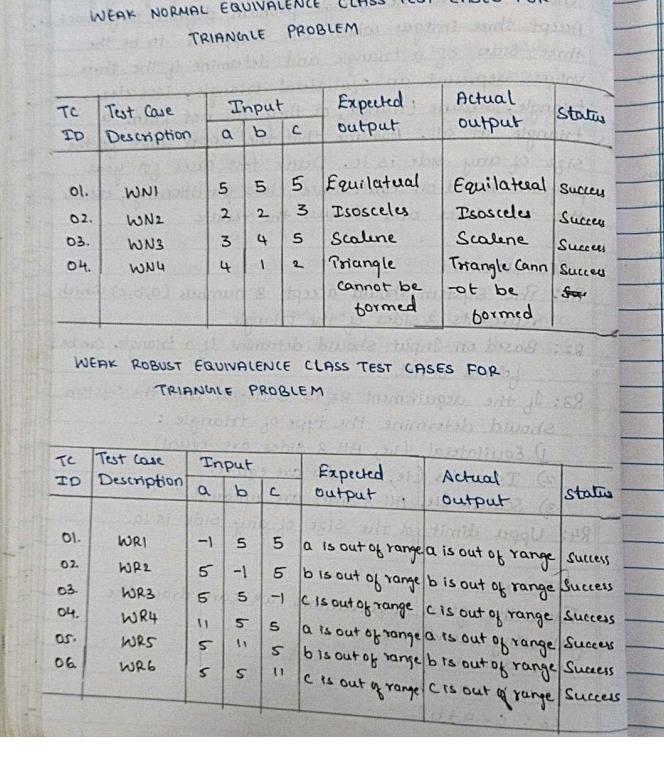 WEAK NORMAL EQUIVALENCE CLASS TEST CASES FOR
TRIANGLE PROBLEM
TC ID Test Case Description Input a b c Expected output Actual output Status
01. WN1 5 5 5 Equilateral Equilateral Success
02. WN2 2 2 3 Isosceles Isosceles Success
03. WN3 3 4 5 Scalene Scalene Success
04. WN4 4 1 2 Triangle Triangle Cann Success
cannot be -ot be
formed formed
WEAK ROBUST EQUIVALENCE CLASS TEST CASES FOR
TRIANGLE PROBLEM
TC ID Test Case Description Input a b c Expected output Actual output Status
01. WR1 -1 5 5 a is out of range a is out of range Success
02. WR2 5 -1 5 b is out of range b is out of range Success
03. WR3 5 5 -1 c is out of range c is out of range Success
04. WR4 11 5 5 a is out of range a is out of range Success
05. WR5 5 11 5 b is out of range b is out of range Success
06. WR6 5 5 11 c is out of range c is out of range Success